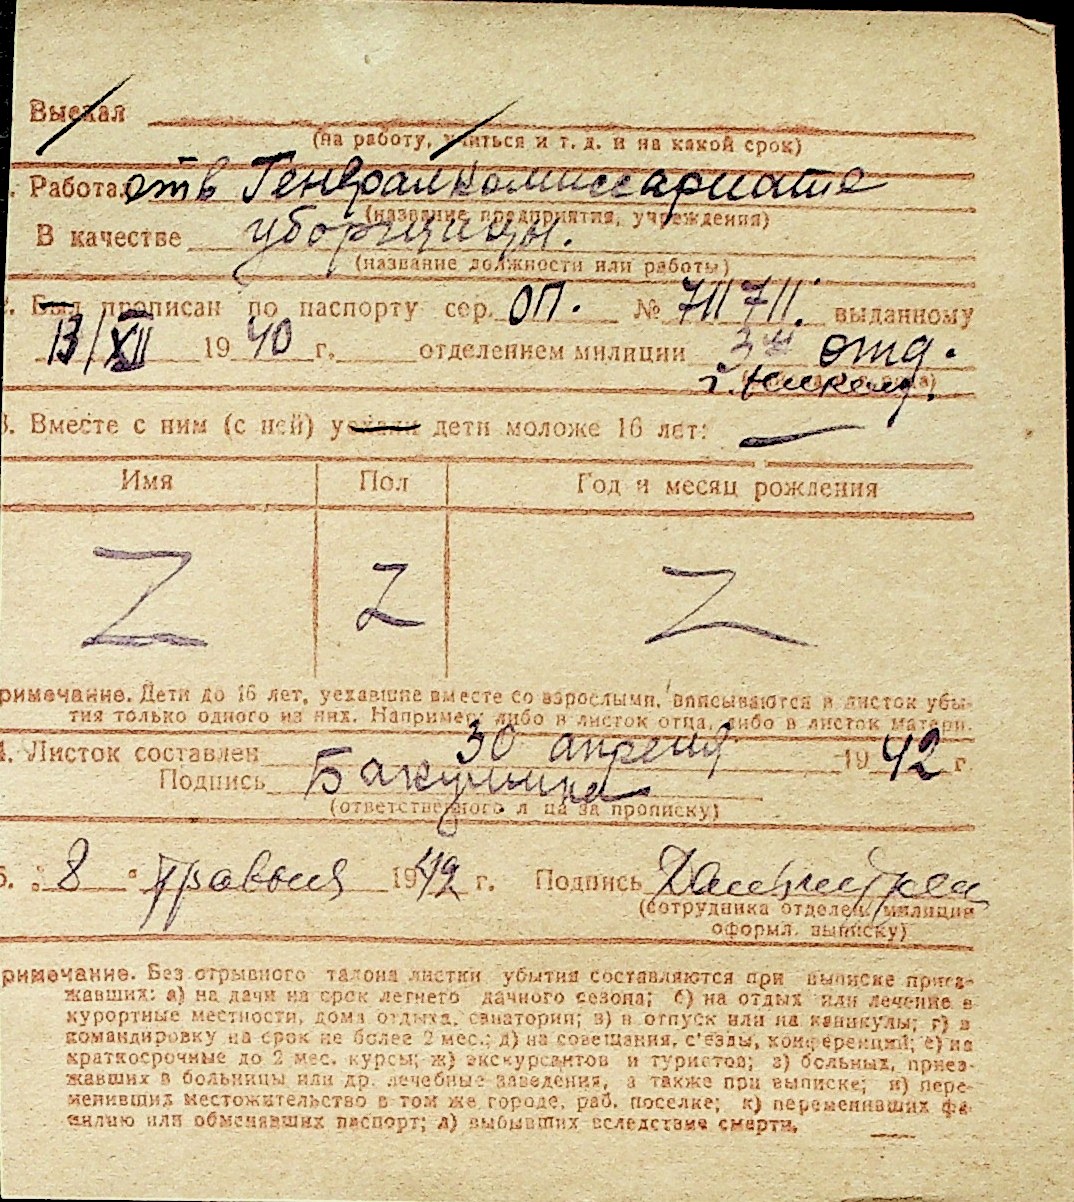 Выехал
(на работу, учиться и т. д. и на какой срок)
Работает в Генералкомиссариате
(название предприятия, учреждения)
В качестве уборщицы.
(название должности или работы)
2. Был прописан по паспорту сер. ОП. № 711711. выданному
13/XII 1940 г. отделением милиции 3м отд.
3. Вместе с ним (с ней) уехали дети моложе 16 лет: —
Имя Пол Год и месяц рождения
Z Z Z
римечание. Дети до 16 лет, уехавшие вместе со взрослыми, вписываются в листок убы-
тия только одного из них. Например: либо в листок отца, либо в листок матери.
4. Листок составлен 30 апреля 1942 г.
Подпись Бакулина
(ответственного лица за прописку)
5. „8“ травыня 1942 г. Подпись
(сотрудника отделен. милиции
оформл. выписку)
римечание. Без отрывного талона листки убытия составляются при выписке приез-
жавших: а) на дачи на срок летнего дачного сезона; б) на отдых или лечение в
курортные местности, дома отдыха, санатории; в) в отпуск или на каникулы; г) в
командировку на срок не более 2 мес.; д) на совещания, с'езды, конференции; е) на
краткосрочные до 2 мес. курсы; ж) экскурсантов и туристов; з) больных, приез-
жавших в больницы или др. лечебные заведения, а также при выписке; и) пере-
менивших местожительство в том же городе, раб. поселке; к) переменивших фа-
милию или обменявших паспорт; л) выбывших вследствие смерти.